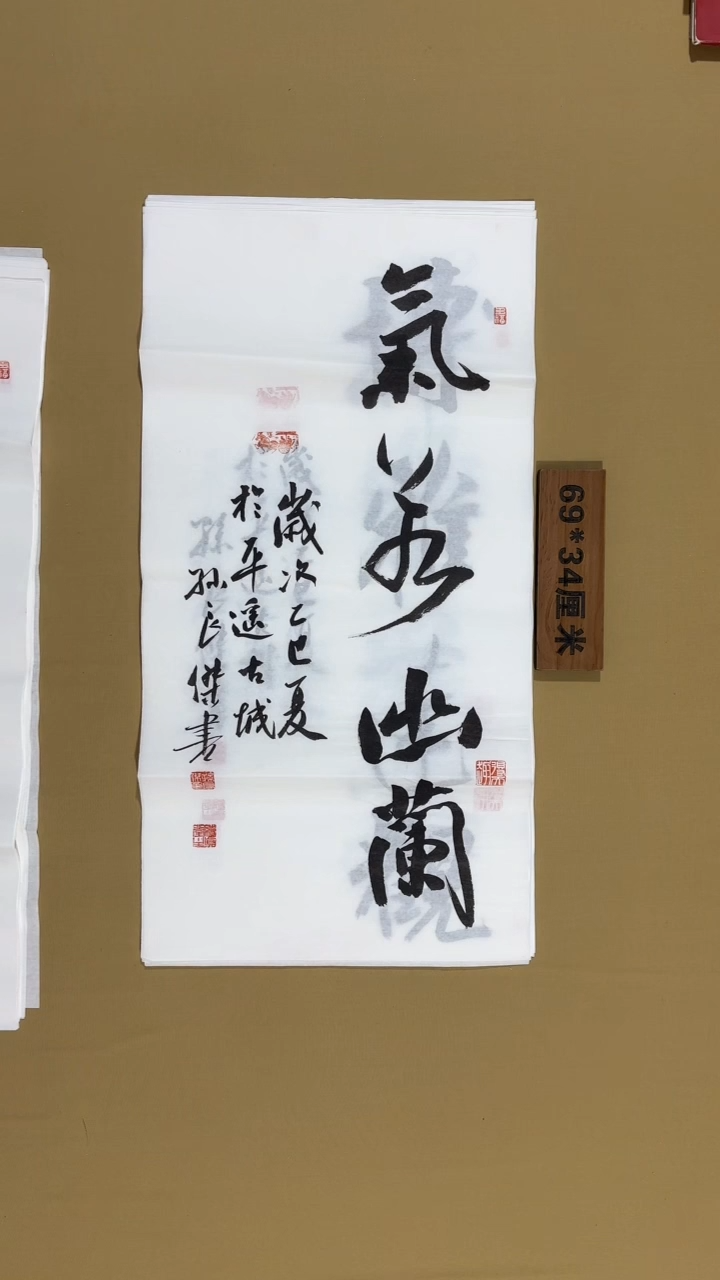 氣若幽蘭
歲次乙巳夏
於平遙古城
孫良傑書
69*34厘米